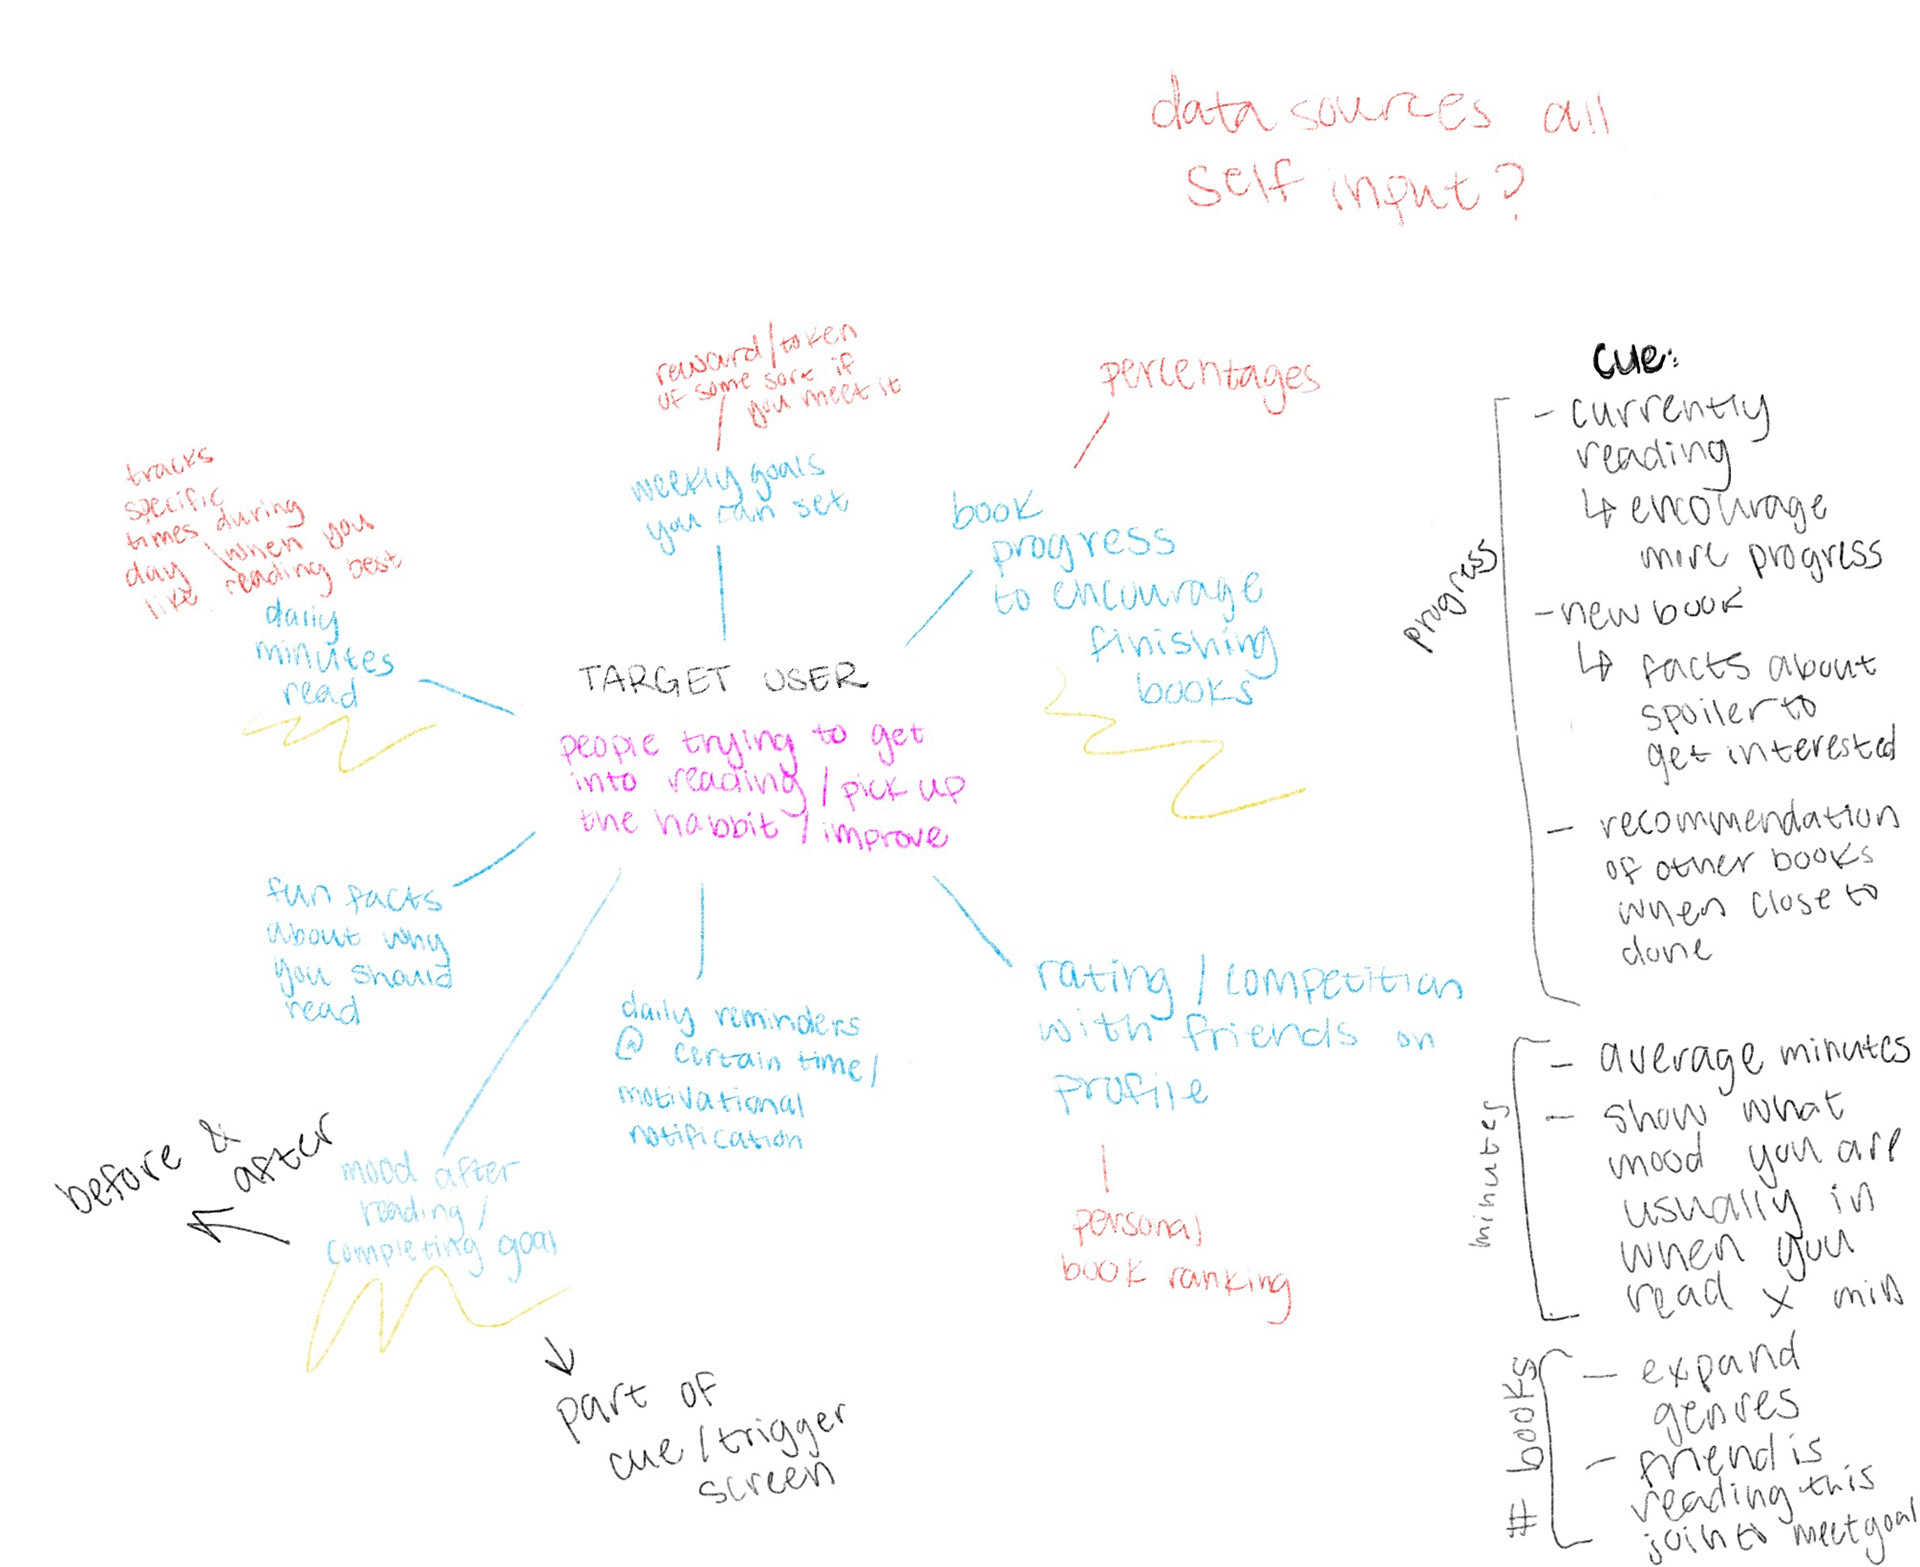 data sources all
self input?
reward/token
of some sort if
you meet it
weekly goals
you can set
percentages
book
progress
to encourage
finishing
books
tracks
specific
times during
day \when you
like reading best
daily
minutes
read
TARGET USER
people trying to get
into reading / pick up
the habbit / improve
fun facts
about why
you should
read
daily reminders
@ certain time/
motivational
notification
rating / competition
with friends on
profile
personal
book ranking
before &
after
mood after
reading /
completing goal
part of
cue / trigger
screen
cue:
progress
- currently
reading
↳ encourage
more progress
- new book
↳ facts about
spoiler to
get interested
- recommendation
of other books
when close to
done
minutes
- average minutes
- show what
mood you are
usually in
when you
read x min
# books
- expand
genres
- friend is
reading this
join to meet goal